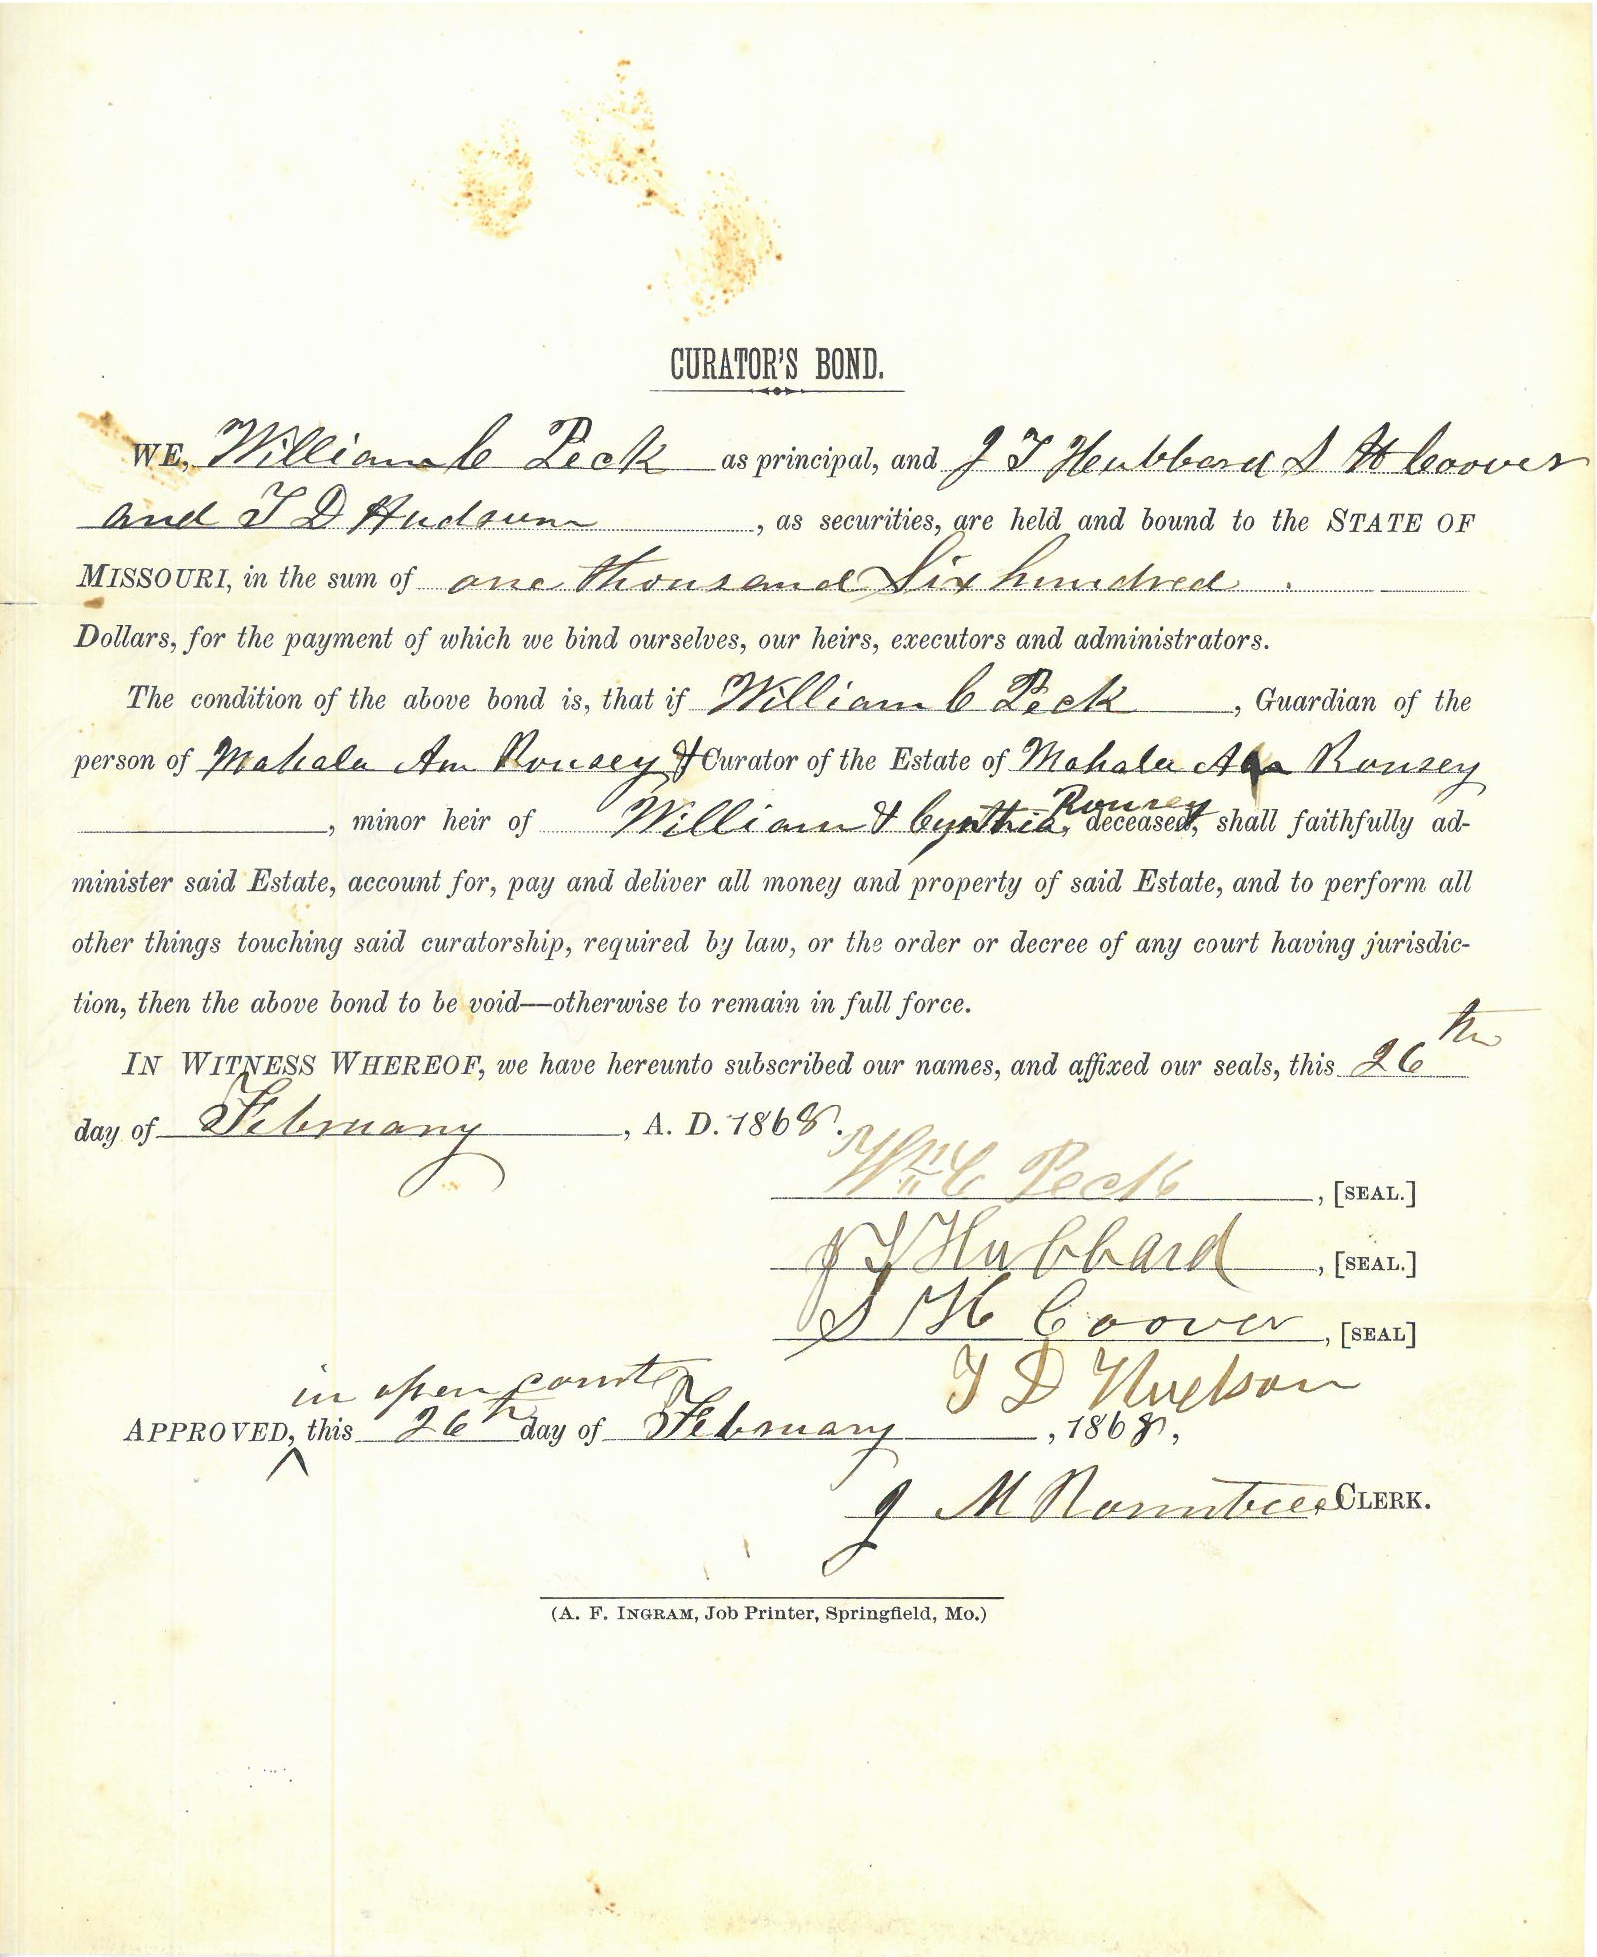 CURATOR'S BOND.
WE, William C Peck as principal, and J T Hubbard S H Coover
and T D Hudson, as securities, are held and bound to the STATE OF
MISSOURI, in the sum of one thousand Six hundred
Dollars, for the payment of which we bind ourselves, our heirs, executors and administrators.
The condition of the above bond is, that if William C Peck, Guardian of the
person of Mahala Ann Rousey & Curator of the Estate of Mahala Ann Rousey
, minor heir of William & Cynthia Rousey, deceased, shall faithfully ad-
minister said Estate, account for, pay and deliver all money and property of said Estate, and to perform all
other things touching said curatorship, required by law, or the order or decree of any court having jurisdic-
tion, then the above bond to be void—otherwise to remain in full force.
IN WITNESS WHEREOF, we have hereunto subscribed our names, and affixed our seals, this 26th
day of February, A. D. 1868.
Wm C Peck, [SEAL.]
J T Hubbard, [SEAL.]
S H Coover, [SEAL]
T D Hudson
in open court
APPROVED, this 26th day of February, 1868,
J M Rountree, CLERK.
(A. F. INGRAM, Job Printer, Springfield, Mo.)